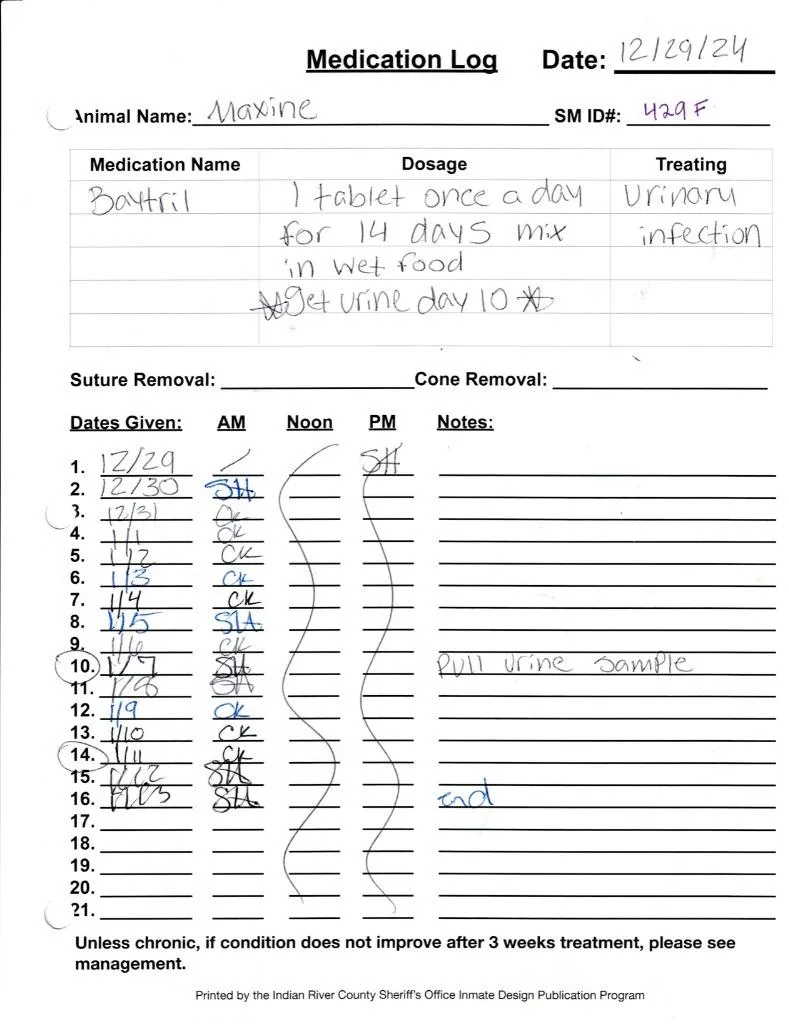 Medication Log Date: 12/29/24
Animal Name: Maxine SM ID#: 429F
Medication Name Dosage Treating
Baytril 1 tablet once a day Urinary
for 14 days mix infection
in wet food
*get urine day 10 *
Suture Removal: Cone Removal:
Dates Given: AM Noon PM Notes:
1. 12/29 / SH
2. 12/30 SH
3. 12/31 CK
4. 1/1 CK
5. 1/2 CK
6. 1/3 CK
7. 1/4 CK
8. 1/5 SH
9. 1/6 CK
10. 1/7 SH Pull urine sample
11. 1/8 SH
12. 1/9 CK
13. 1/10 CK
14. 1/11 CK
15. 1/12 SH
16. 1/13 SH end
17.
18.
19.
20.
21.
Unless chronic, if condition does not improve after 3 weeks treatment, please see
management.
Printed by the Indian River County Sheriff's Office Inmate Design Publication Program